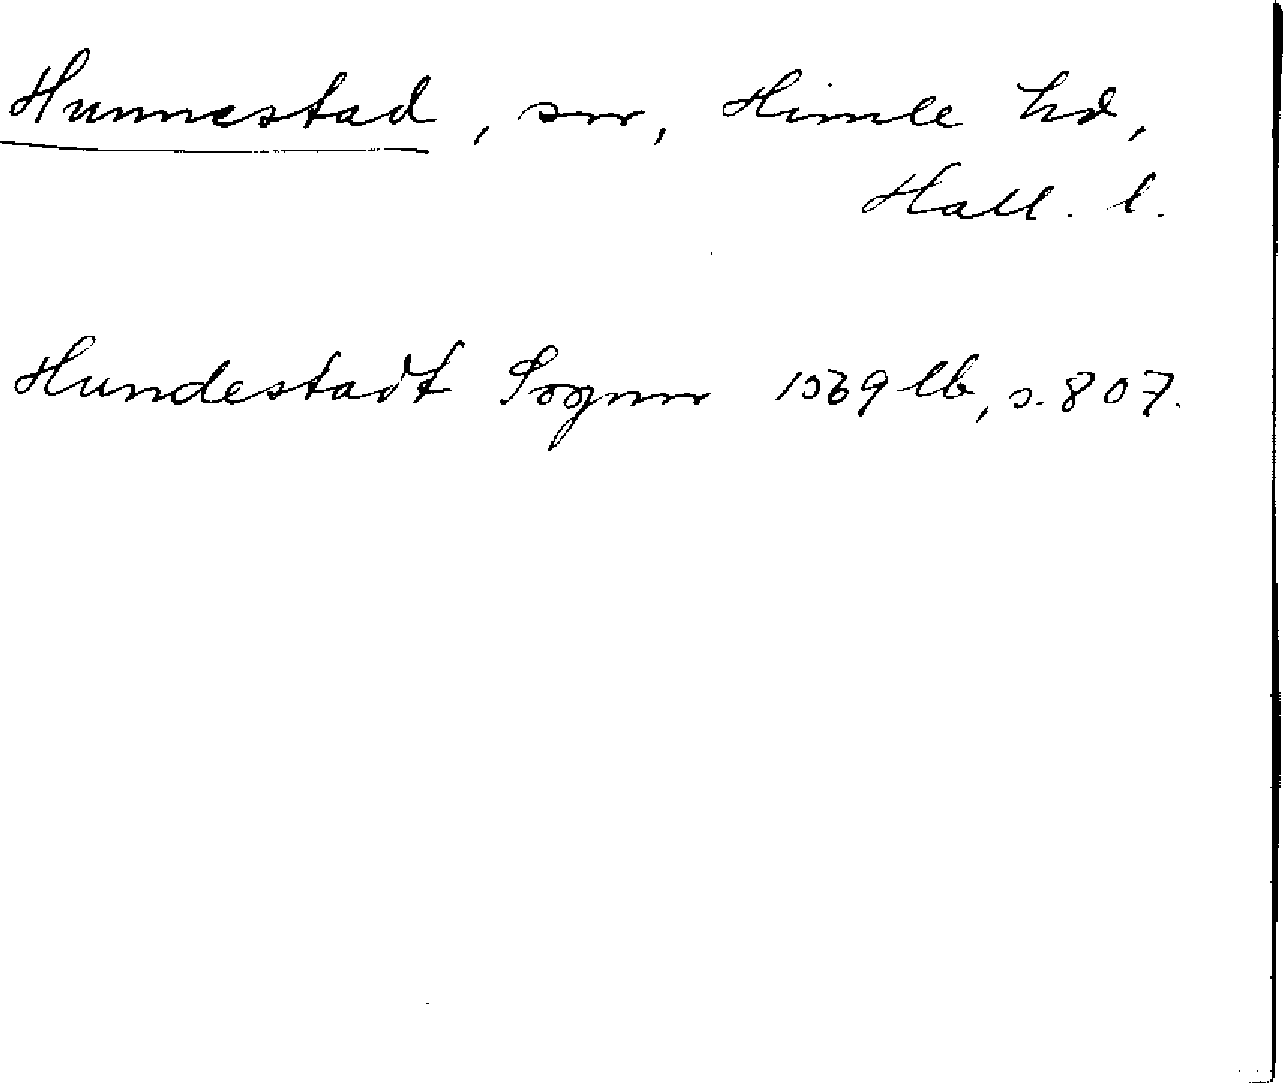 Hunnestad, sn, Himle hd,
Hall. l.
Hundestadt Sognn 1569 lb, s. 807.